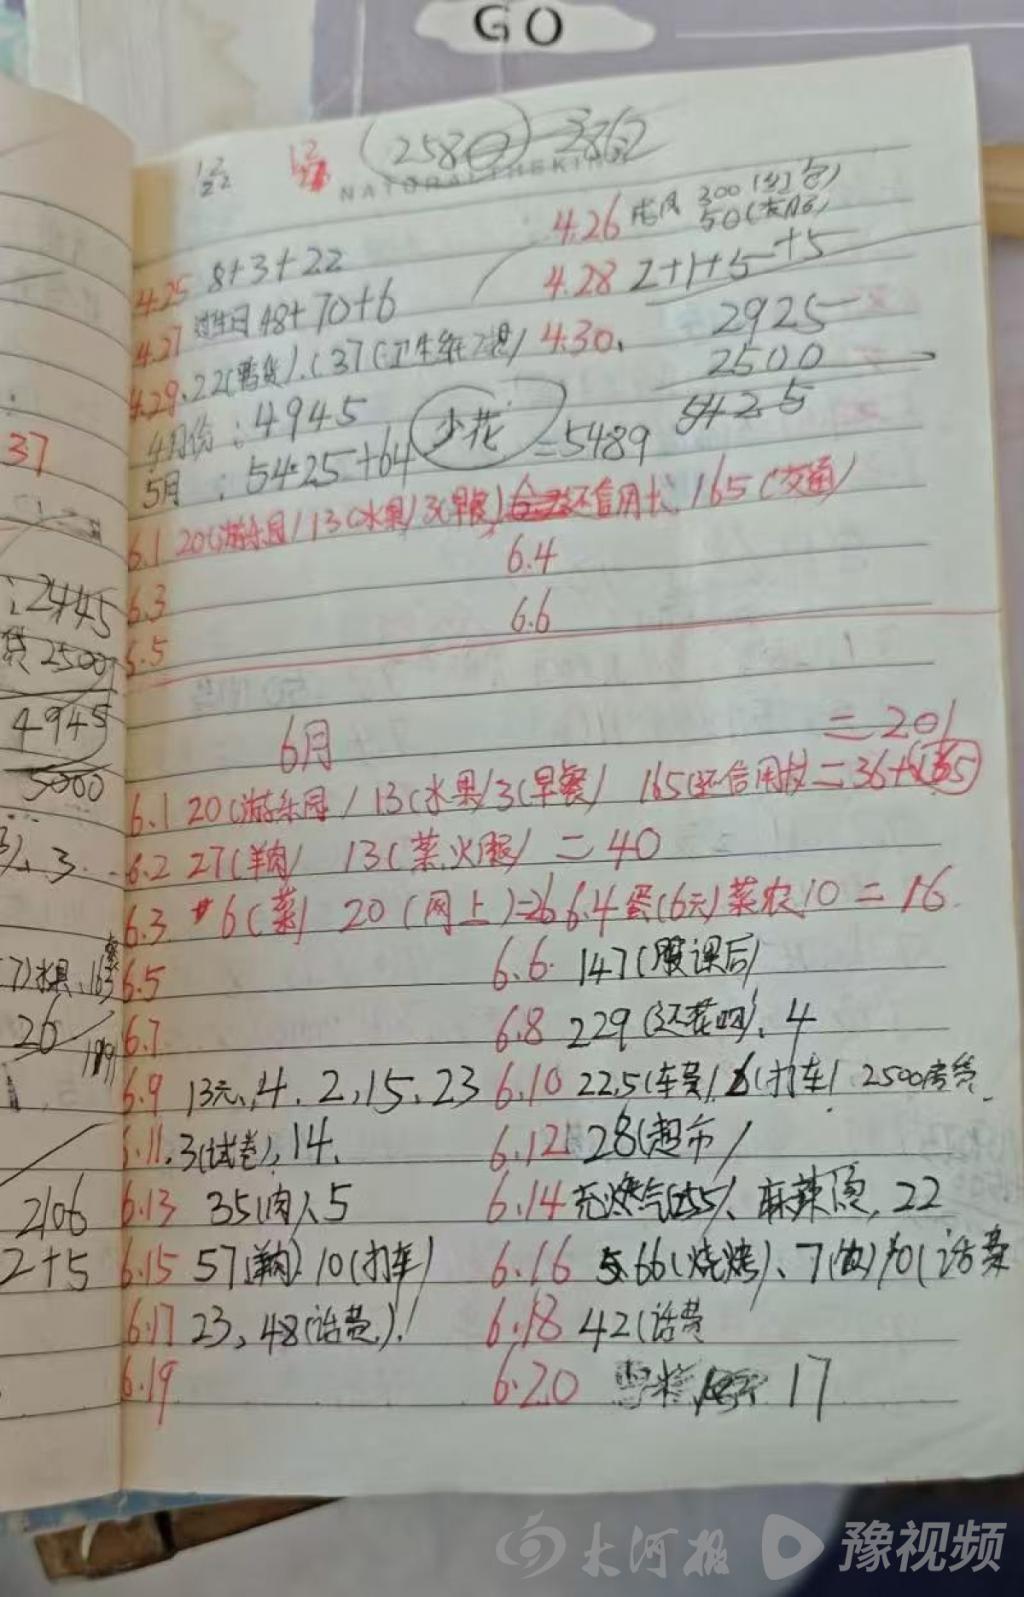 GO
2580
4.26 300(红包)
50
4.25 8+3+22
4.28 2+1+5+5
4.27 过生日 48+70+6
2925
4.29. 22 37(卫生纸2提) 4.30.
2500
4月份:4945
5425
5月:5425+64 少花 =5489
6.1 20(游乐园) 13(水果) 3(早餐) 还信用卡 165(交通)
6.3 6.4
6.5 6.6
6月 =201
6.1 20(游乐园) 13(水果) 3(早餐) 165(还信用卡)=36+165
6.2 27(羊肉) 13(菜.火腿)=40
6.3 6(菜) 20(网上)=26 6.4 蛋(6元)菜农10=16
6.5 6.6. 147(课后)
6.7 6.8 229(还花呗)、4
6.9 13元、4、2、15、23 6.10 22.5(车费) 6(打车) 2500房贷
6.11. 3(试卷)、14、 6.12 28(超市)
6.13 35(肉)、5 6.14 充燃气(255)、麻辣烫, 22
6.15 57(羊肉) 10(打车) 6.16 66(烧烤)、7 10(话费
6.17 23, 48(话费) 6.18 42(话费
6.19 6.20 17
37
2445
贷2500
4945
5000
3.
水果、163
20
199
2106
2+5
大河报 豫视频